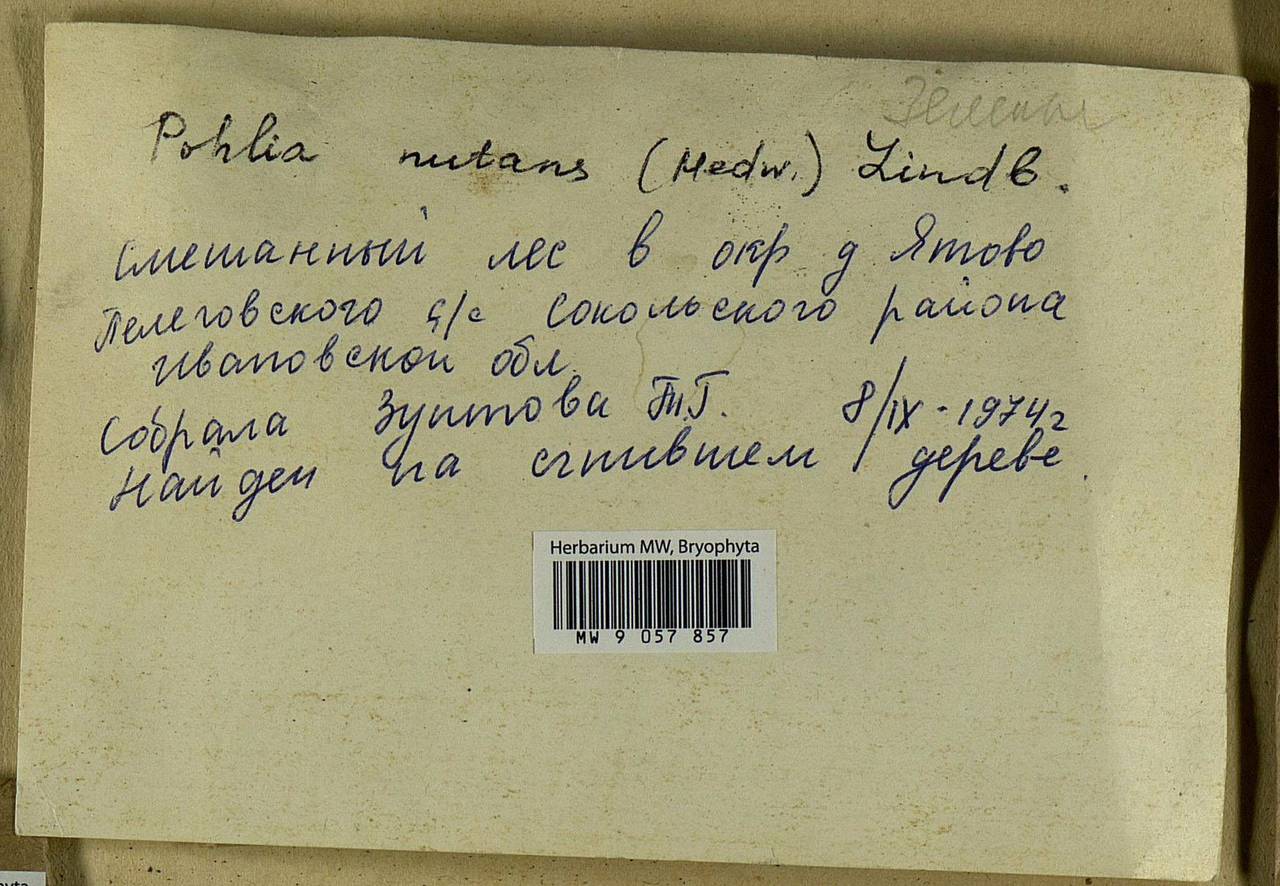 Зеленые
Pohlia nutans (Hedw.) Lindb.
Смешанный лес в окр д Ятово
Пелеговского с/с Сокольского района
Ивановской обл.
Собрала Зунтова Т.Г. 8/IX-1974г
Найден на сгнившем дереве.
Herbarium MW, Bryophyta
MW 9 057 857